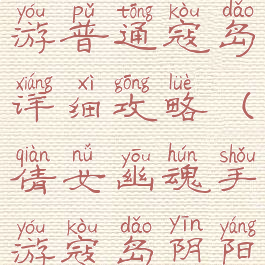 yóu pǔ tōng kòu dǎo
游普通寇岛
xiáng xì gōng lüè
详细攻略（
qiàn nǚ yōu hún shǒu
倩女幽魂手
yóu kòu dǎo yīn yáng
游寇岛阴阳